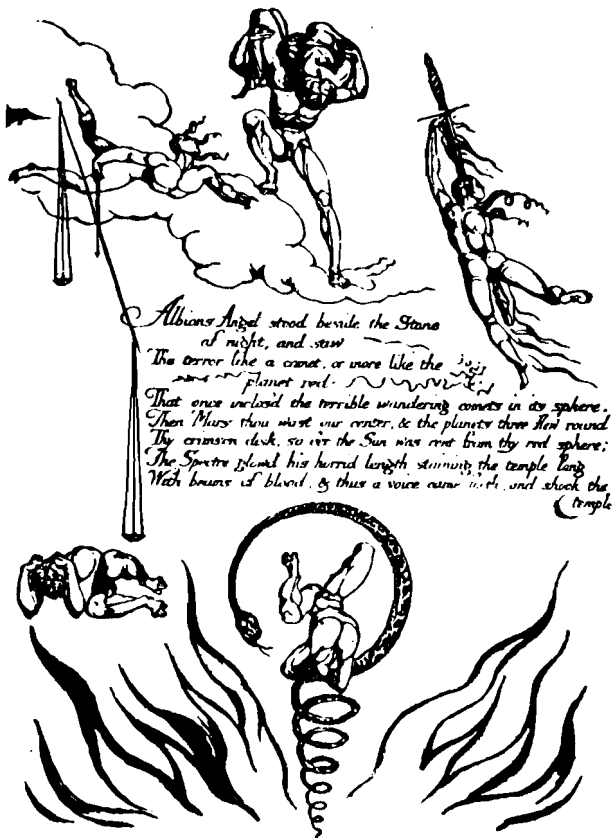 Albions Angel stood beside the Stone
of night, and saw
The terror like a comet, or more like the
planet red
That once inclos'd the terrible wandering comets in its sphere.
Then Mars thou wast our center, & the planets three flew round
Thy crimson disk, so e'er the Sun was rent from thy red sphere;
The Spectre glowd his horrid length staining the temple long
With beams of blood, & thus a voice came forth, and shook the
temple